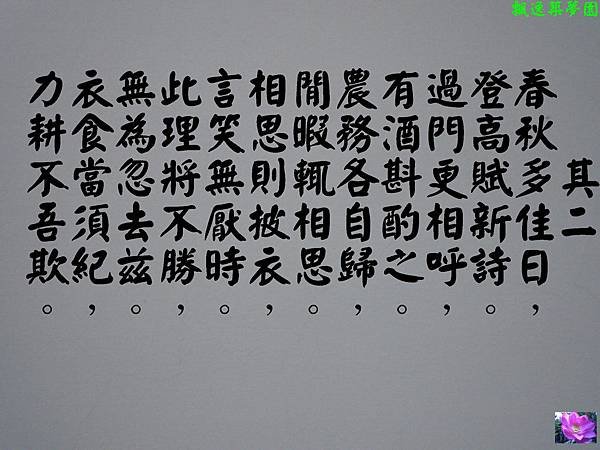 飄逸築夢園
其二
春秋多佳日，
登高賦新詩。
過門更相呼，
有酒斟酌之。
農務各自歸，
閒暇輒相思。
相思則披衣，
言笑無厭時。
此理將不勝，
無為忽去茲。
衣食當須紀，
力耕不吾欺。